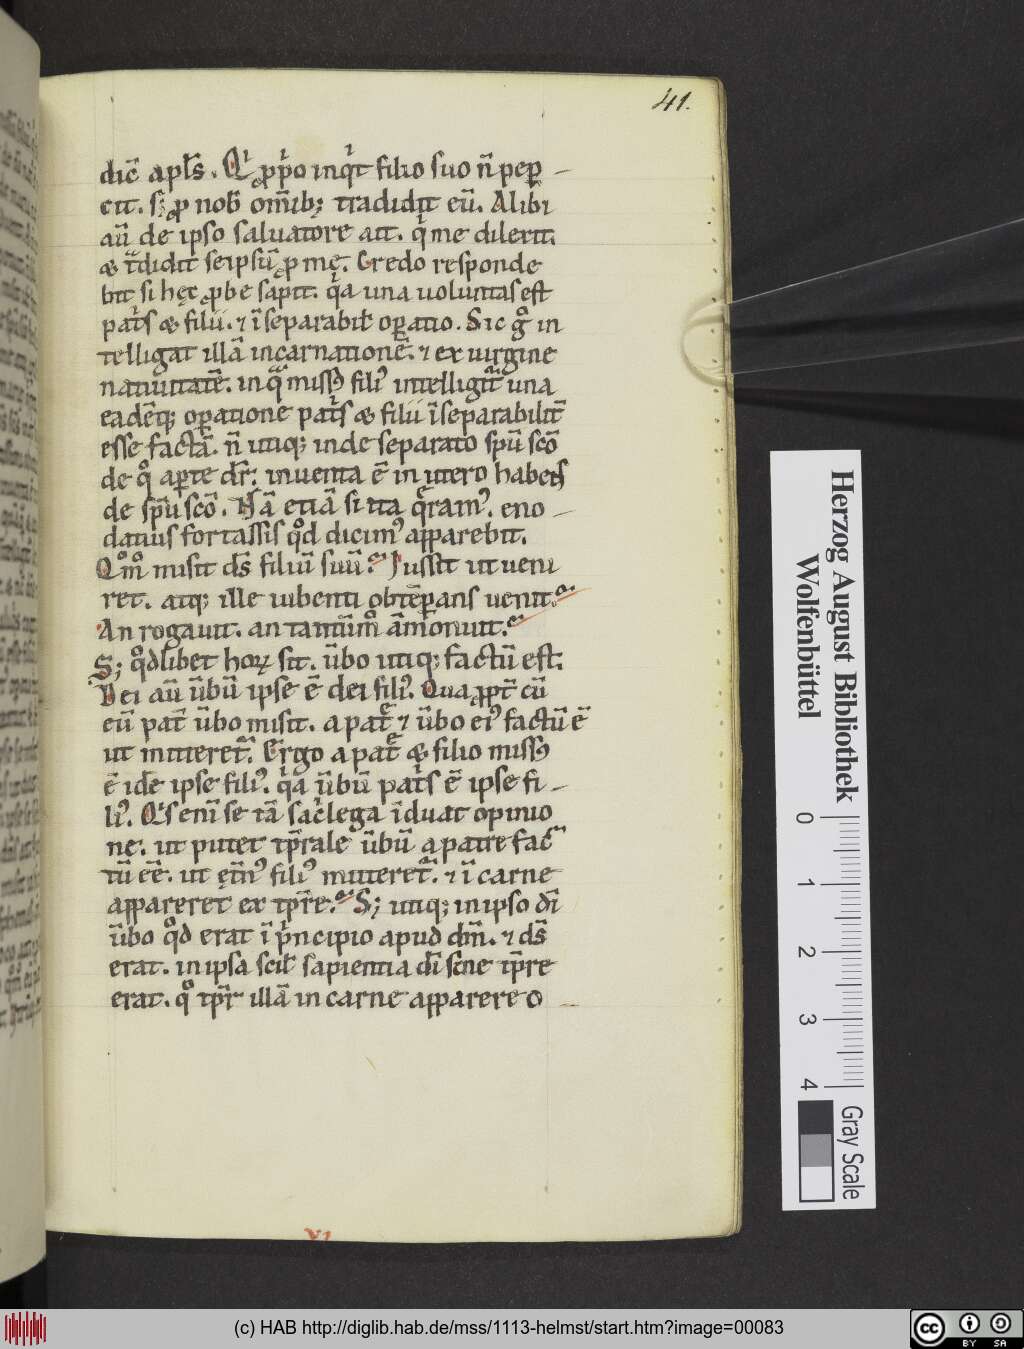 41.
dic̄ apl̄s. Qͥ ꝓpͥo inqͥt filio suo n̄ peꝑ
cit. sꝫ ꝓ nob̄ om̄ibꝫ tradidit eū. Alibi
aū de ipso saluatore ait. qͥ me dilexit.
⁊ tᷓdidit seipsū ꝓ me. Credo responde
bit si hęc ꝓbe sapit. qͥa una uoluntas est
patͥs ⁊ filii. ⁊ īseparabil̄ oꝑatio. Sic gͦ in
telligat illā incarnationē. ⁊ ex uirgine
natiuitatē. in qᷓ missꝰ filiꝰ intelligitᷣ una
eadēqꝫ oꝑatione patͥs ⁊ filii īseparabilit̄
esse factā. n̄ utiqꝫ inde separato spū scō
de qͦ aꝑte dr̄. inuenta ē in utero habens
de spū scō. Nā etiā si ita qͣramꝰ. eno
datius fortassis qͦd dicimꝰ apparebit.
Qͦmͦ misit ds̄ filiū suū. Iussit ut ueni
ret. atqꝫ ille iubenti obtēꝑans uenit.
An rogauit. an tantūmͦ āmonuit.
Sꝫ qͦdlibet hoꝝ sit. ūbo utiqꝫ factū est.
Dei aū ūbū ipse ē dei filiꝰ. Quaꝓpt̄ cū
eū pat̄ ūbo misit. a patᵉ ⁊ ūbo eiꝰ factū ē
ut mitteretᷣ. Ergo a patᵉ ⁊ filio missꝰ
ē idē ipse filiꝰ. qͥa ūbū patͥs ē ipse fi
liꝰ. Qͥs enī se tā sacͥlega īduat opinio
ne. ut putet tp̄rale ūbū a patre fac
tū eē. ut ęt̄nꝰ filiꝰ mitteretᷣ. ⁊ ī carne
appareret ex tp̄re. Sꝫ utiqꝫ in ipso dī
ūbo qͦd erat ī pͥncipio apud dm̄. ⁊ ds̄
erat. in ipsa scil̄ sapientia dī sine tp̄re
erat. qͦ tp̄r illā in carne apparere o
VI
Herzog August Bibliothek
Wolfenbüttel
0 1 2 3 4
Gray Scale
(c) HAB http://diglib.hab.de/mss/1113-helmst/start.htm?image=00083
cc BY SA